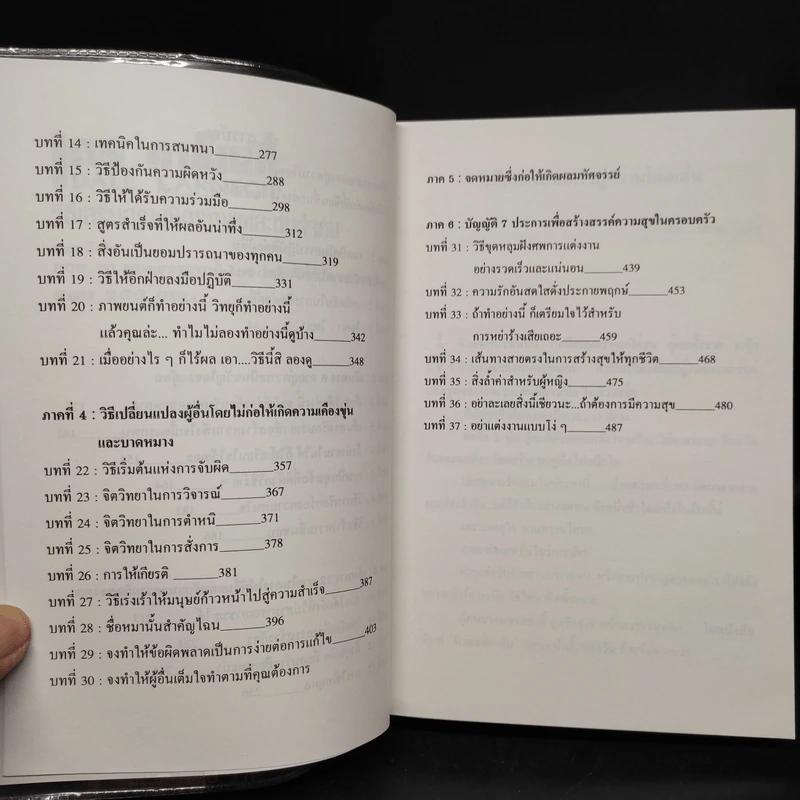 บทที่ 14 : เทคนิคในการสนทนา______277
บทที่ 15 : วิธีป้องกันความผิดหวัง______288
บทที่ 16 : วิธีให้ได้รับความร่วมมือ______298
บทที่ 17 : สูตรสำเร็จที่ให้ผลอันน่าทึ่ง______312
บทที่ 18 : สิ่งอันเป็นยอมปรารถนาของทุกคน______319
บทที่ 19 : วิธีให้อีกฝ่ายลงมือปฏิบัติ______331
บทที่ 20 : ภาพยนต์ก็ทำอย่างนี้ วิทยุก็ทำอย่างนี้
แล้วคุณล่ะ... ทำไมไม่ลองทำอย่างนี้ดูบ้าง____342
บทที่ 21 : เมื่ออย่างไร ๆ ก็ไร้ผล เอา....วิธีนี้สิ ลองดู____348
ภาคที่ 4 : วิธีเปลี่ยนแปลงผู้อื่นโดยไม่ก่อให้เกิดความเคืองขุ่น
และบาดหมาง
บทที่ 22 : วิธีเริ่มต้นแห่งการจับผิด______357
บทที่ 23 : จิตวิทยาในการวิจารณ์______367
บทที่ 24 : จิตวิทยาในการตำหนิ______371
บทที่ 25 : จิตวิทยาในการสั่งการ______378
บทที่ 26 : การให้เกียรติ ______381
บทที่ 27 : วิธีเร่งเร้าให้มนุษย์ก้าวหน้าไปสู่ความสำเร็จ____387
บทที่ 28 : ชื่อหมานั้นสำคัญไฉน______396
บทที่ 29 : จงทำให้ข้อผิดพลาดเป็นการง่ายต่อการแก้ไข____403
บทที่ 30 : จงทำให้ผู้อื่นเต็มใจทำตามที่คุณต้องการ
ภาค 5 : จดหมายซึ่งก่อให้เกิดผลมหัศจรรย์
ภาค 6 : บัญญัติ 7 ประการเพื่อสร้างสรรค์ความสุขในครอบครัว
บทที่ 31 : วิธีขุดหลุมฝังศพการแต่งงาน
อย่างรวดเร็วและแน่นอน______439
บทที่ 32 : ความรักอันสดใสดั่งประกายพฤกษ์______453
บทที่ 33 : ถ้าทำอย่างนี้ ก็เตรียมใจไว้สำหรับ
การหย่าร้างเสียเถอะ______459
บทที่ 34 : เส้นทางสายตรงในการสร้างสุขให้ทุกชีวิต______468
บทที่ 35 : สิ่งล้ำค่าสำหรับผู้หญิง______475
บทที่ 36 : อย่าละเลยสิ่งนี้เชียวนะ...ถ้าต้องการมีความสุข______480
บทที่ 37 : อย่าแต่งงานแบบโง่ ๆ______487